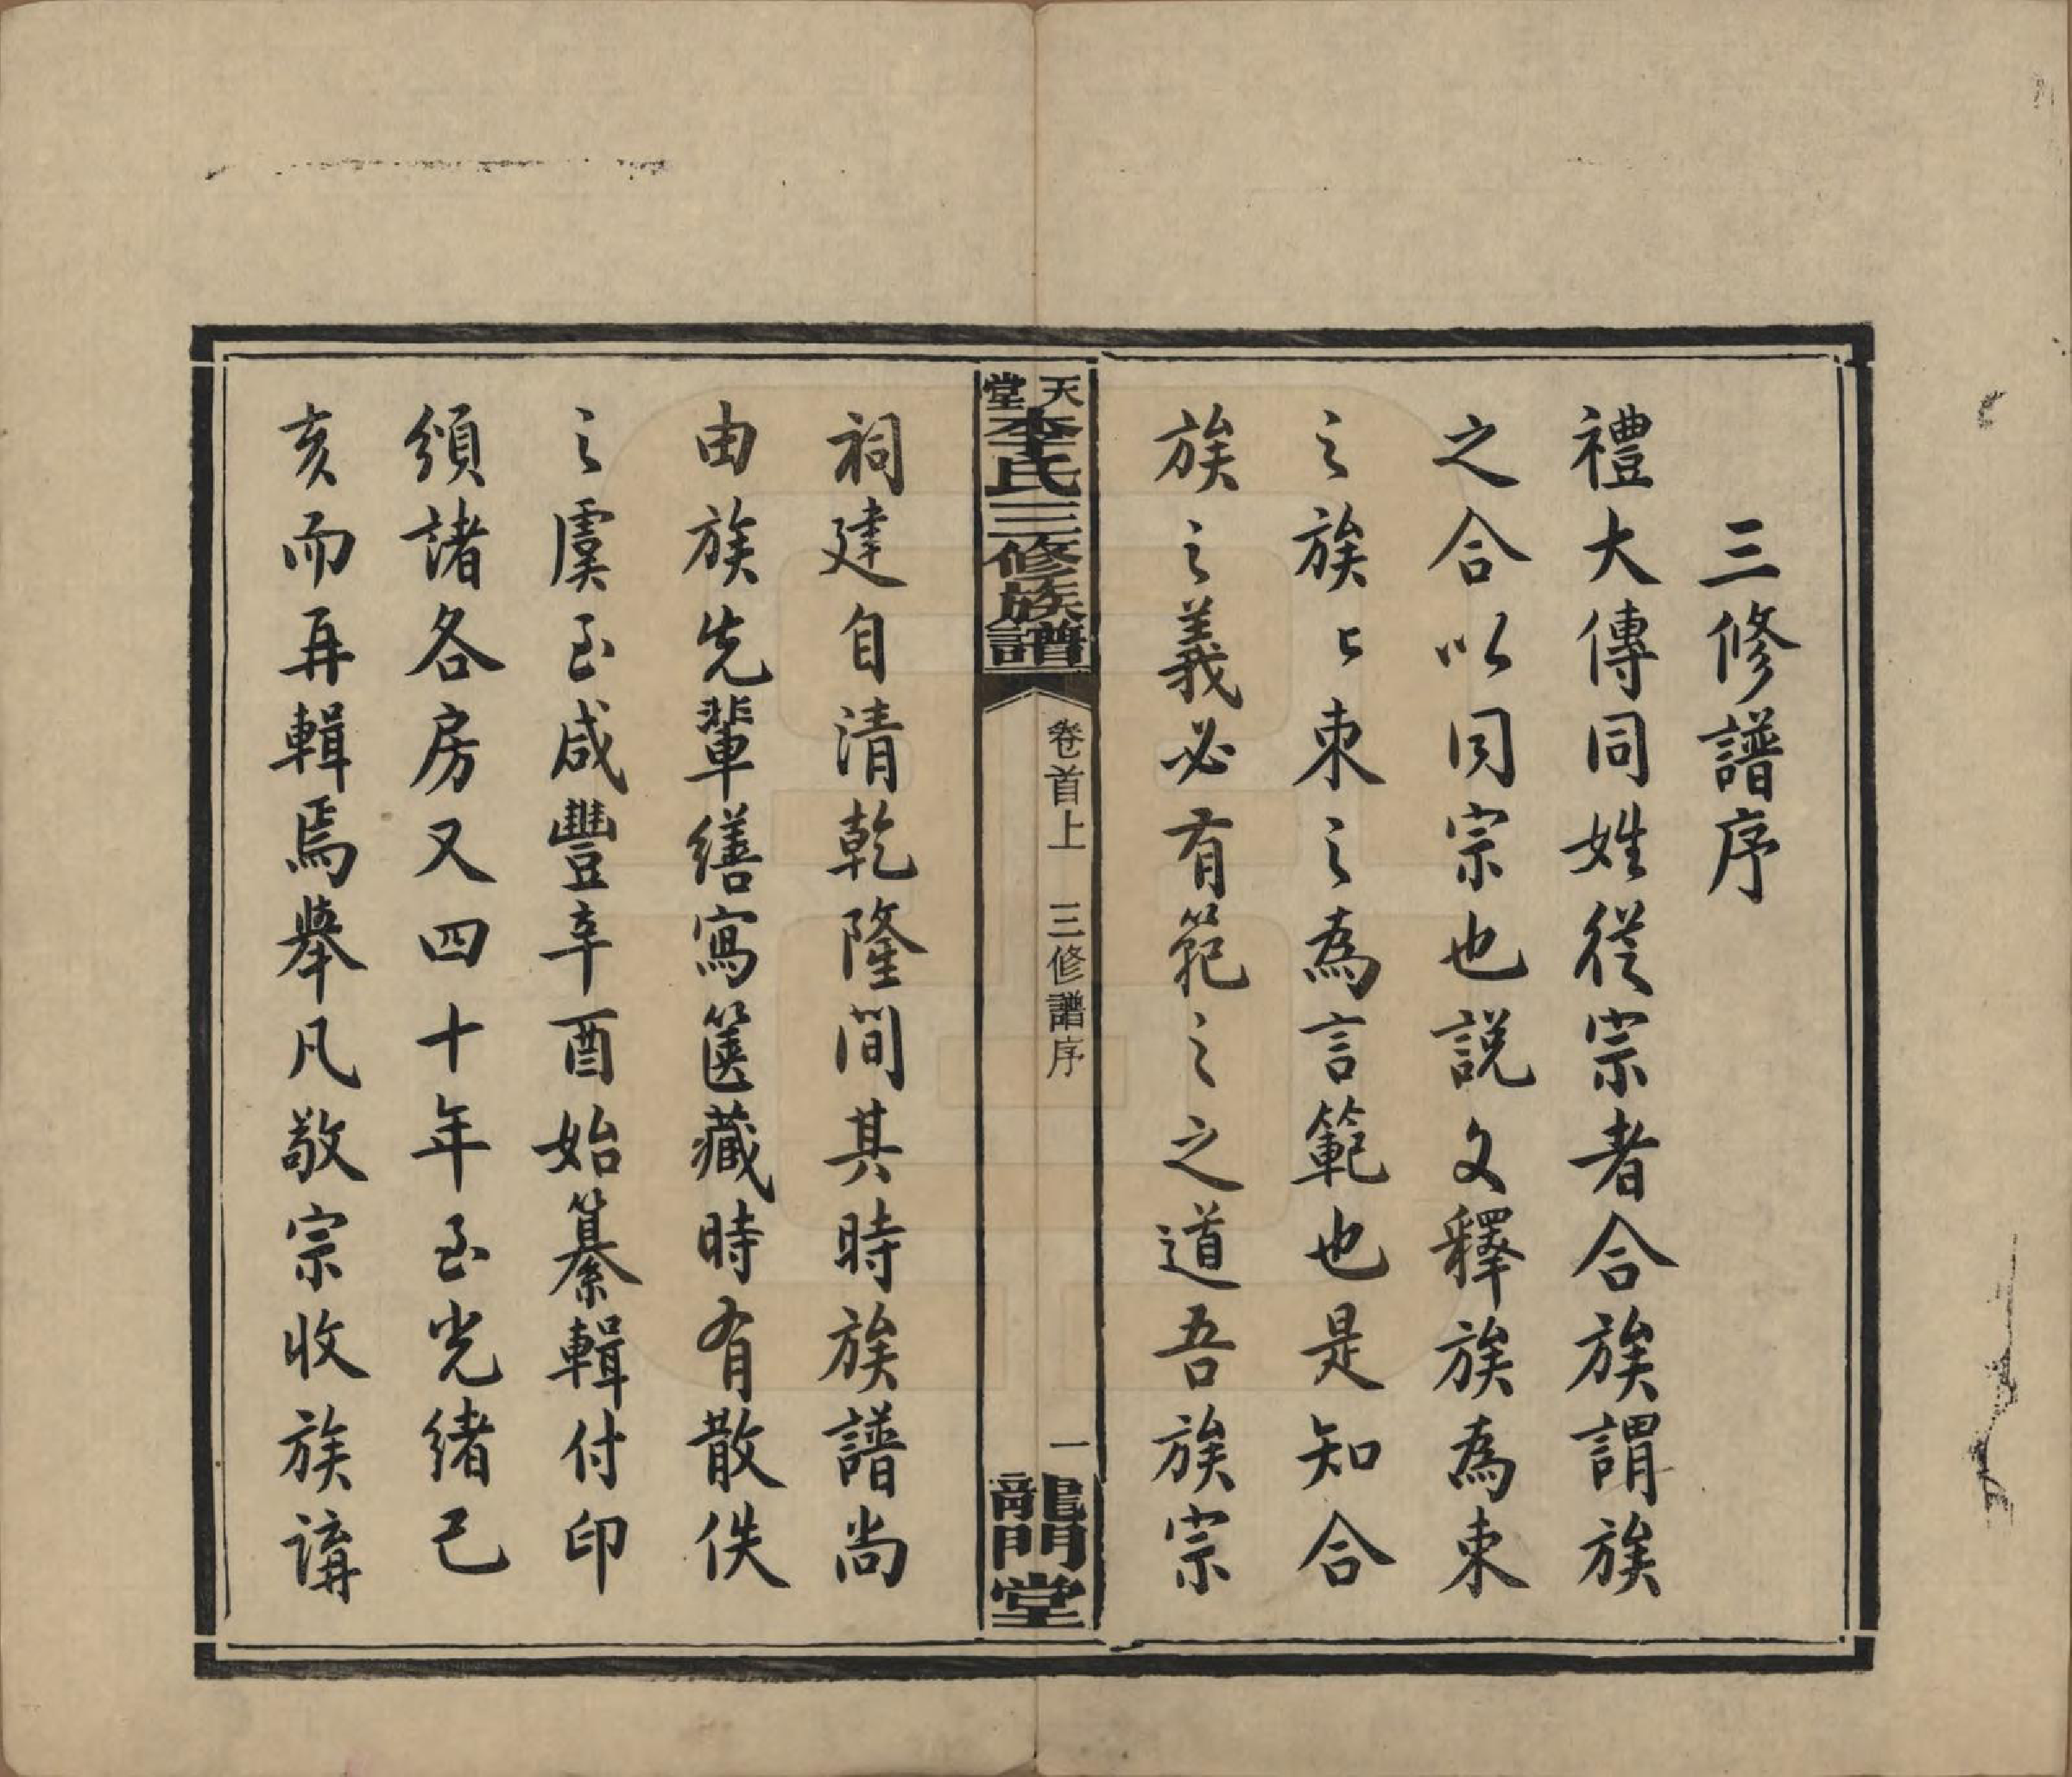 三修譜序
禮大傳同姓從宗者合族謂族
之合以同宗也說文釋族為束
之族〻束之為言範也是知合
族之義必有範之之道吾族宗
天堂李氏三修族譜
卷首上 三修譜序
一
龍門堂
祠建自清乾隆間其時族譜尚
由族先輩繕寫篋藏時有散佚
之虞至咸豐辛酉始纂輯付印
頒諸各房又四十年至光緒己
亥而再輯焉舉凡敬宗收族講